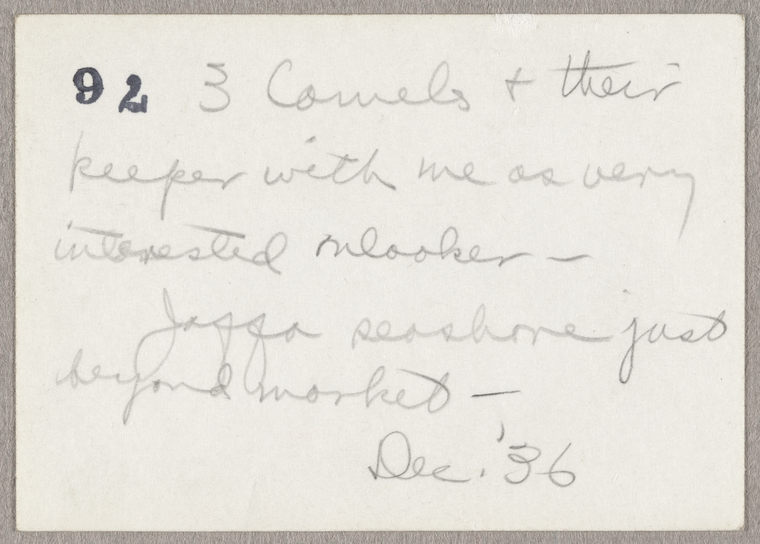 92 3 Camels + their
keeper with me as very
interested onlooker —
Jaffa seashore just
beyond market —
Dec. '36